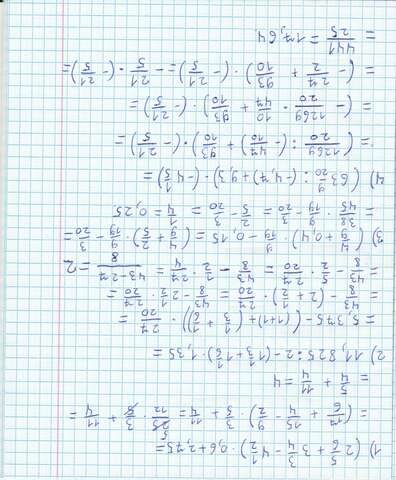 1) (2 5/6 + 3 3/4 - 4 1/2) · 0,6 + 2,75 =
= (17/6 + 15/4 - 9/2) · 3/5 + 11/4 = 25/12 · 3/5 + 11/4 =
= 5/4 + 11/4 = 4
2) 11,825 : 2 - (1 1/3 + 1 1/6) · 1,35 =
= 5,375 - ((1+1) + (1/3 + 1/6)) · 27/20 =
= 43/8 - (2 + 1/2) · 27/20 = 43/8 - 2 1/2 · 27/20 =
= 43/8 - 5/2 · 27/20 = 43/8 - 1/2 · 27/4 = 43-27/8 = 2
3) (4/9 + 0,4) · 9/19 - 0,15 = (4/9 + 2/5) · 9/19 - 3/20 =
= 38/45 · 9/19 - 3/20 = 2/5 - 3/20 = 1/4 = 0,25
4) (63 9/20 : (-4,7) + 9,3) · (-4 1/5) =
= (1269/20 : (- 47/10) + 93/10) · (- 21/5) =
= (- 1269/20 · 10/47 + 93/10) · (- 21/5) =
= (- 27/2 + 93/10) · (- 21/5) = - 21/5 · (- 21/5) =
= 441/25 = 17,64.